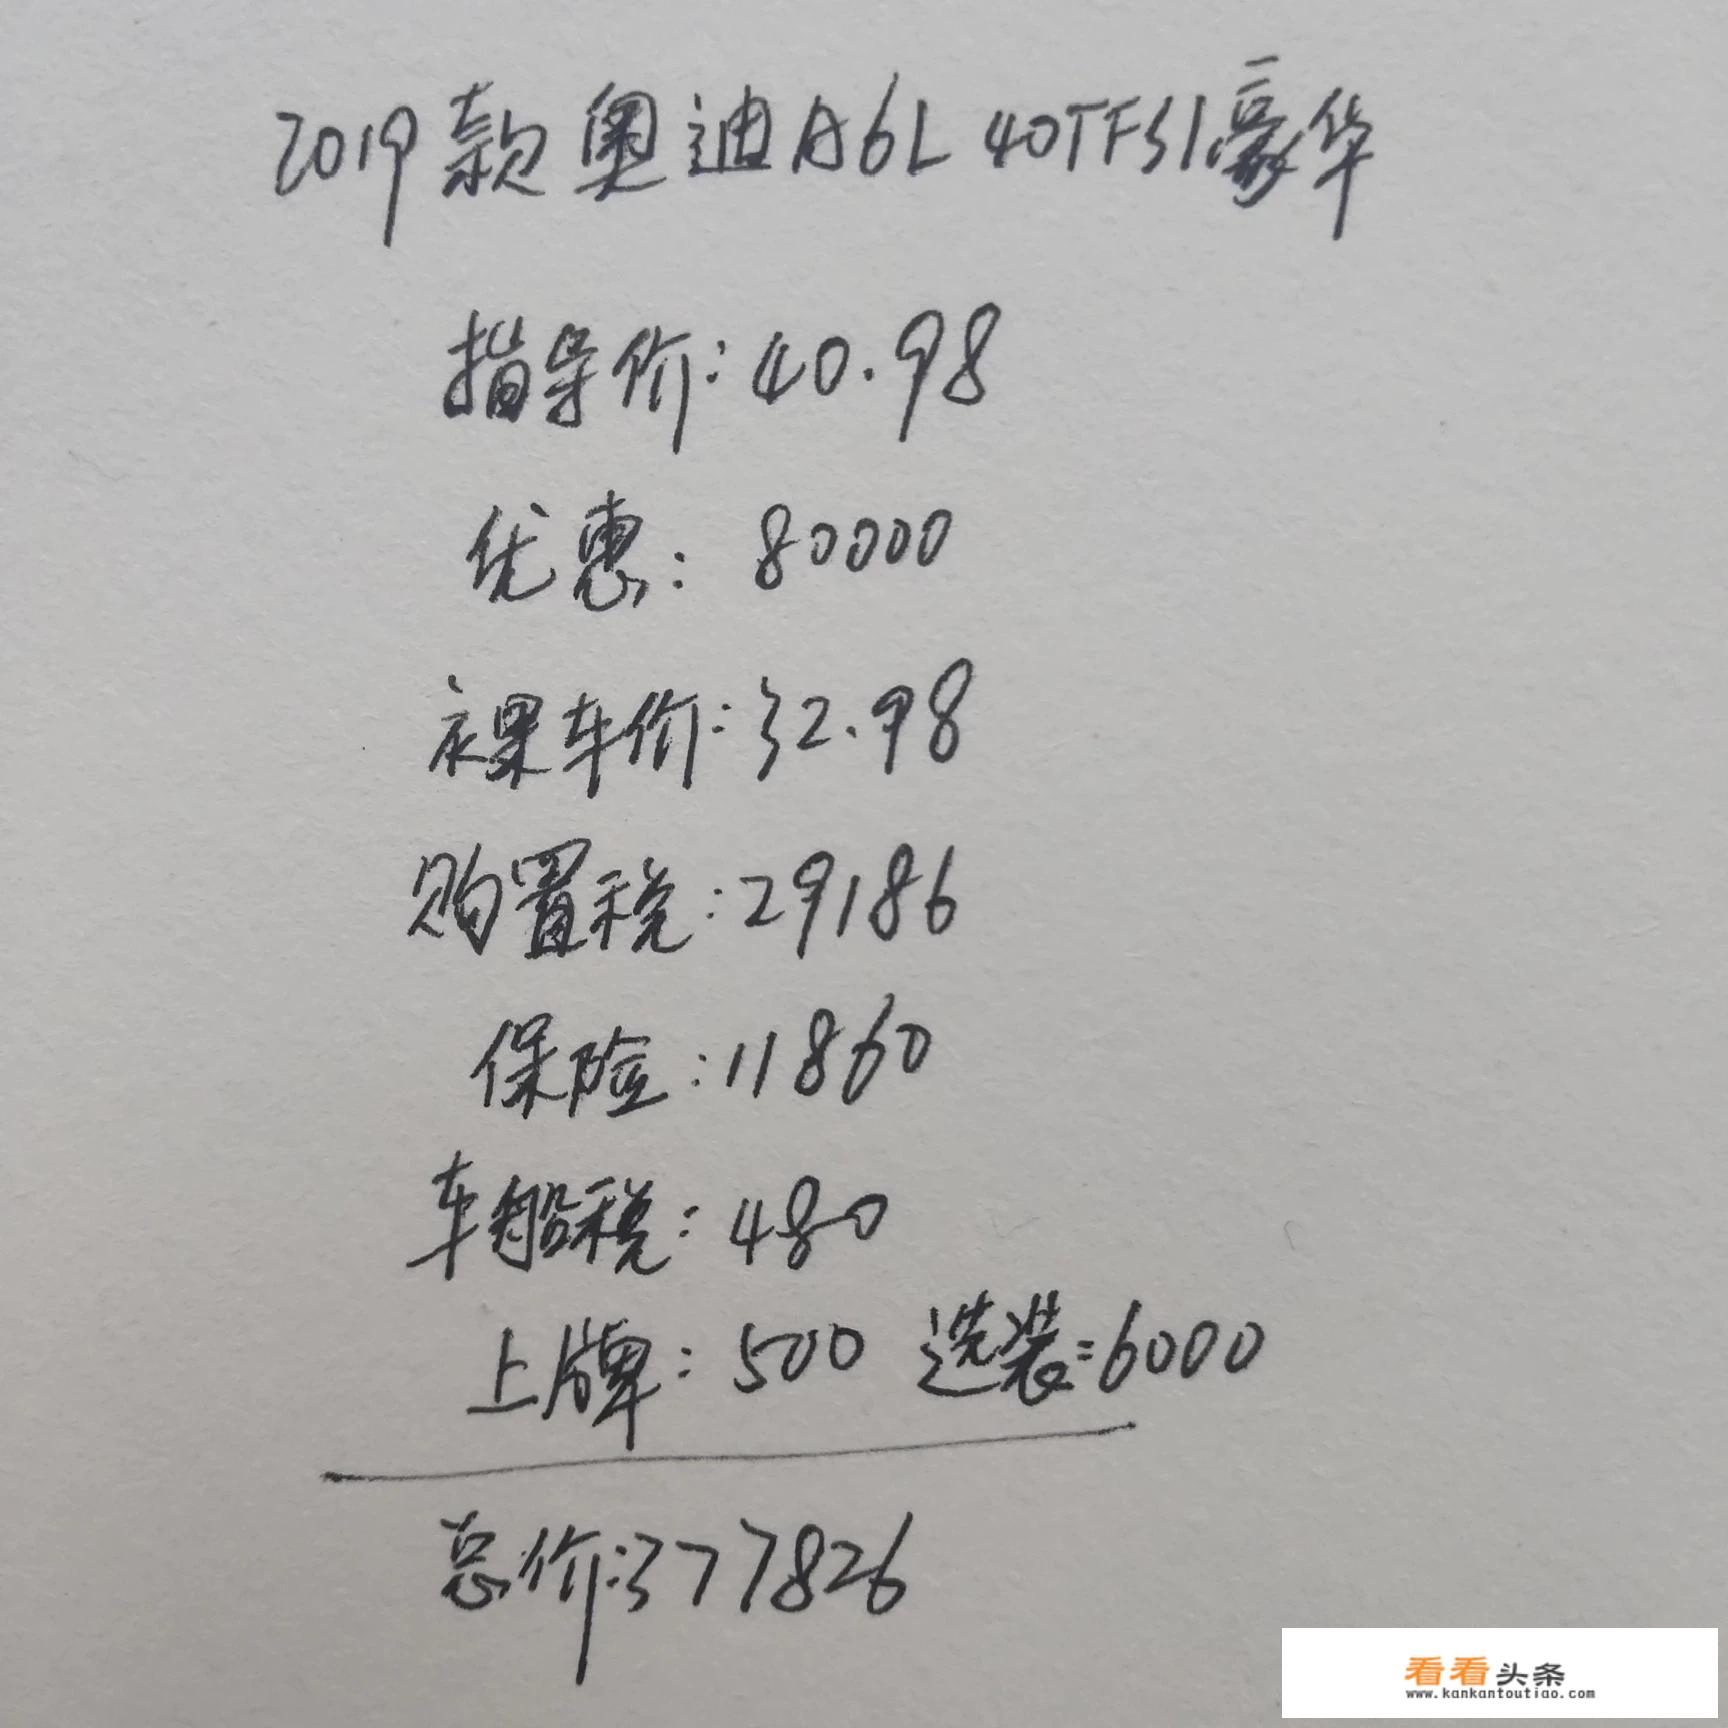 2019款奥迪A6L 40TFSI豪华
指导价:40.98
优惠:80000
裸车价:32.98
购置税:29186
保险:11860
车船税:480
上牌:500 选装:6000
总价:377826
看看头条
www.kankantoutiao.com